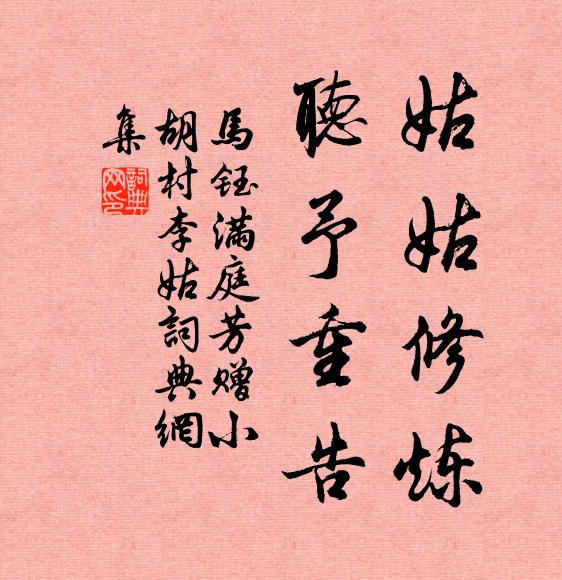 姑姑修炼
聽予重告
馬鈺滿庭芳赠小
胡村李姑詞典網
集
詞典
网印